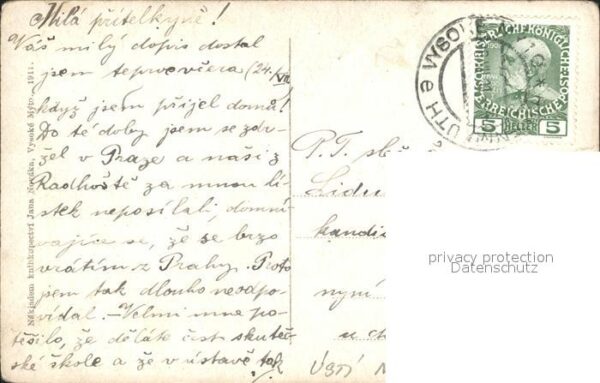 Milá přítelkyně!
Váš milý dopis dostal
jsem teprve včera (24./VII.)
když jsem přijel domů!
Do té doby jsem se zdr-
žel v Praze a naši z
Radhoště za mnou lí-
stek neposílali, domní-
vajíce se, že se brzo
vrátím z Prahy. Proto
jsem tak dlouho neodpo-
vídal. – Velmi mne po-
těšilo, že děláte část skuteč-
ské škole a že v ústavě tak
Nákladem knihkupectví Jana Vysoké Mýto. 1911.
VYSOKÉ
MAUTH
KAISERLICHE KÖNIGLICHE
ÖSTERREICHISCHE POST
5 HELLER 5
P. T. sl
Lidu
kandi
nyní
Ústí
privacy protection
Datenschutz